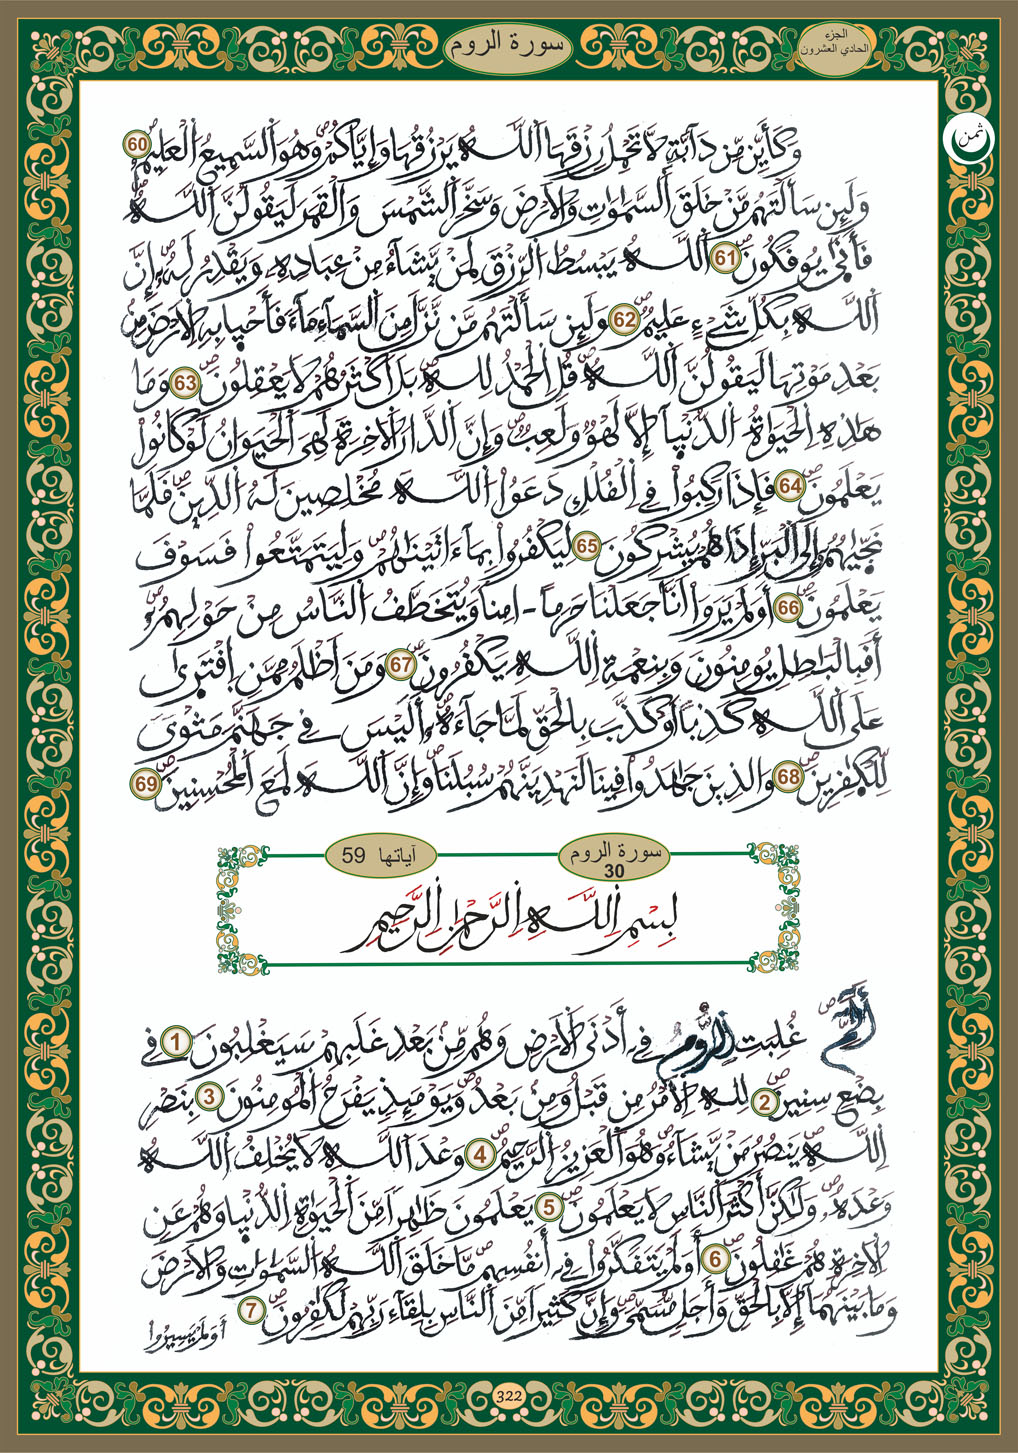 سورة الروم
الجزء
الحادي العشرون
ثمن
وَكَأَيِّن مِّن دَآبَّةٍ لَّا تَحْمِلُ رِزْقَهَا اَ۬للَّهُ يَرْزُقُهَا وَإِيَّاكُمْ وَهُوَ اَ۬لسَّمِيعُ اُ۬لْعَلِيمُ 60
وَلَئِن سَأَلْتَهُم مَّنْ خَلَقَ اَ۬لسَّمَٰوَٰتِ وَالَارْضَ وَسَخَّرَ اَ۬لشَّمْسَ وَالْقَمَرَ لَيَقُولُنَّ اَ۬للَّهُ
فَأَنّ۪يٰ يُوفَكُونَ 61 اَ۬للَّهُ يَبْسُطُ اُ۬لرِّزْقَ لِمَنْ يَّشَآءُ مِنْ عِبَادِهِۦ وَيَقْدِرُ لَهُۥٓ إِنَّ
اَ۬للَّهَ بِكُلِّ شَےْءٍ عَلِيمٌ 62 وَلَئِن سَأَلْتَهُم مَّن نَّزَّلَ مِنَ اَ۬لسَّمَآءِ مَآءً فَأَحْيَا بِهِ اِ۬لَارْضَ مِنۢ
بَعْدِ مَوْتِهَا لَيَقُولُنَّ اَ۬للَّهُ قُلِ اِ۬لْحَمْدُ لِلهِ بَلَ اَكْثَرُهُمْ لَا يَعْقِلُونَ 63 وَمَا
هَٰذِهِ اِ۬لْحَيَوٰةُ اُ۬لدُّنْي۪آ إِلَّا لَهْوٌ وَلَعِبٌ وَإِنَّ اَ۬لدَّارَ اَ۬لَاخِرَةَ لَهِيَ اَ۬لْحَيَوَانُ لَوْ كَانُواْ
يَعْلَمُونَ 64 فَإِذَا رَكِبُواْ فِے اِ۬لْفُلْكِ دَعَوُاْ اُ۬للَّهَ مُخْلِصِينَ لَهُ اُ۬لدِّينَ فَلَمَّا
نَجّ۪يٰهُمُۥٓ إِلَى اَ۬لْبَرِّ إِذَا هُمْ يُشْرِكُونَ 65 لِيَكْفُرُواْ بِمَآ ءَاتَيْنَٰهُمْ وَلِيَتَمَتَّعُواْ فَسَوْفَ
يَعْلَمُونَ 66 أَوَلَمْ يَرَوَاْ اَنَّا جَعَلْنَا حَرَماً اٰمِناً وَيُتَخَطَّفُ اُ۬لنَّاسُ مِنْ حَوْلِهِمُۥٓ
أَفَبِالْبَٰطِلِ يُومِنُونَ وَبِنِعْمَةِ اِ۬للَّهِ يَكْفُرُونَ 67 وَمَنَ اَظْلَمُ مِمَّنِ اِ۪فْتَر۪يٰ
عَلَى اَ۬للَّهِ كَذِباً اَوْ كَذَّبَ بِالْحَقِّ لَمَّا جَآءَهُۥٓ أَلَيْسَ فِے جَهَنَّمَ مَثْوىً
لِّلْكٰ۪فِرِينَ 68 وَالذِينَ جَٰهَدُواْ فِينَا لَنَهْدِيَنَّهُمْ سُبُلَنَا وَإِنَّ اَ۬للَّهَ لَمَعَ اَ۬لْمُحْسِنِينَ 69
سورة الروم 30
آياتها 59
بِسْمِ اِ۬للَّهِ اِ۬لرَّحْمَٰنِ اِ۬لرَّحِيمِ
أَلَٓمِّٓ غُلِبَتِ اِ۬لرُّومُ فِےٓ أَدْنَى اَ۬لَارْضِ وَهُم مِّنۢ بَعْدِ غَلَبِهِمْ سَيَغْلِبُونَ 1 فِے
بِضْعِ سِنِينَ 2 لِلهِ اِ۬لَامْرُ مِن قَبْلُ وَمِنۢ بَعْدُ وَيَوْمَئِذٍ يَفْرَحُ اُ۬لْمُومِنُونَ 3 بِنَصْرِ
اِ۬للَّهِ يَنصُرُ مَنْ يَّشَآءُ وَهُوَ اَ۬لْعَزِيزُ اُ۬لرَّحِيمُ 4 وَعْدَ اَ۬للَّهِ لَا يُخْلِفُ اُ۬للَّهُ
وَعْدَهُۥ وَلَٰكِنَّ أَكْثَرَ اَ۬لنَّاسِ لَا يَعْلَمُونَ 5 يَعْلَمُونَ ظَٰهِراً مِّنَ اَ۬لْحَيَوٰةِ اِ۬لدُّنْي۪ا وَهُمْ عَنِ
اِ۬لَاخِرَةِ هُمْ غَٰفِلُونَ 6 أَوَلَمْ يَتَفَكَّرُواْ فِےٓ أَنفُسِهِم مَّا خَلَقَ اَ۬للَّهُ اُ۬لسَّمَٰوَٰتِ وَالَارْضَ
وَمَا بَيْنَهُمَآ إِلَّا بِالْحَقِّ وَأَجَلٍ مُّسَمّىً وَإِنَّ كَثِيراً مِّنَ اَ۬لنَّاسِ بِلِقَآءِ رَبِّهِمْ لَكَٰفِرُونَ 7
أَوَلَمْ يَسِيرُواْ
322